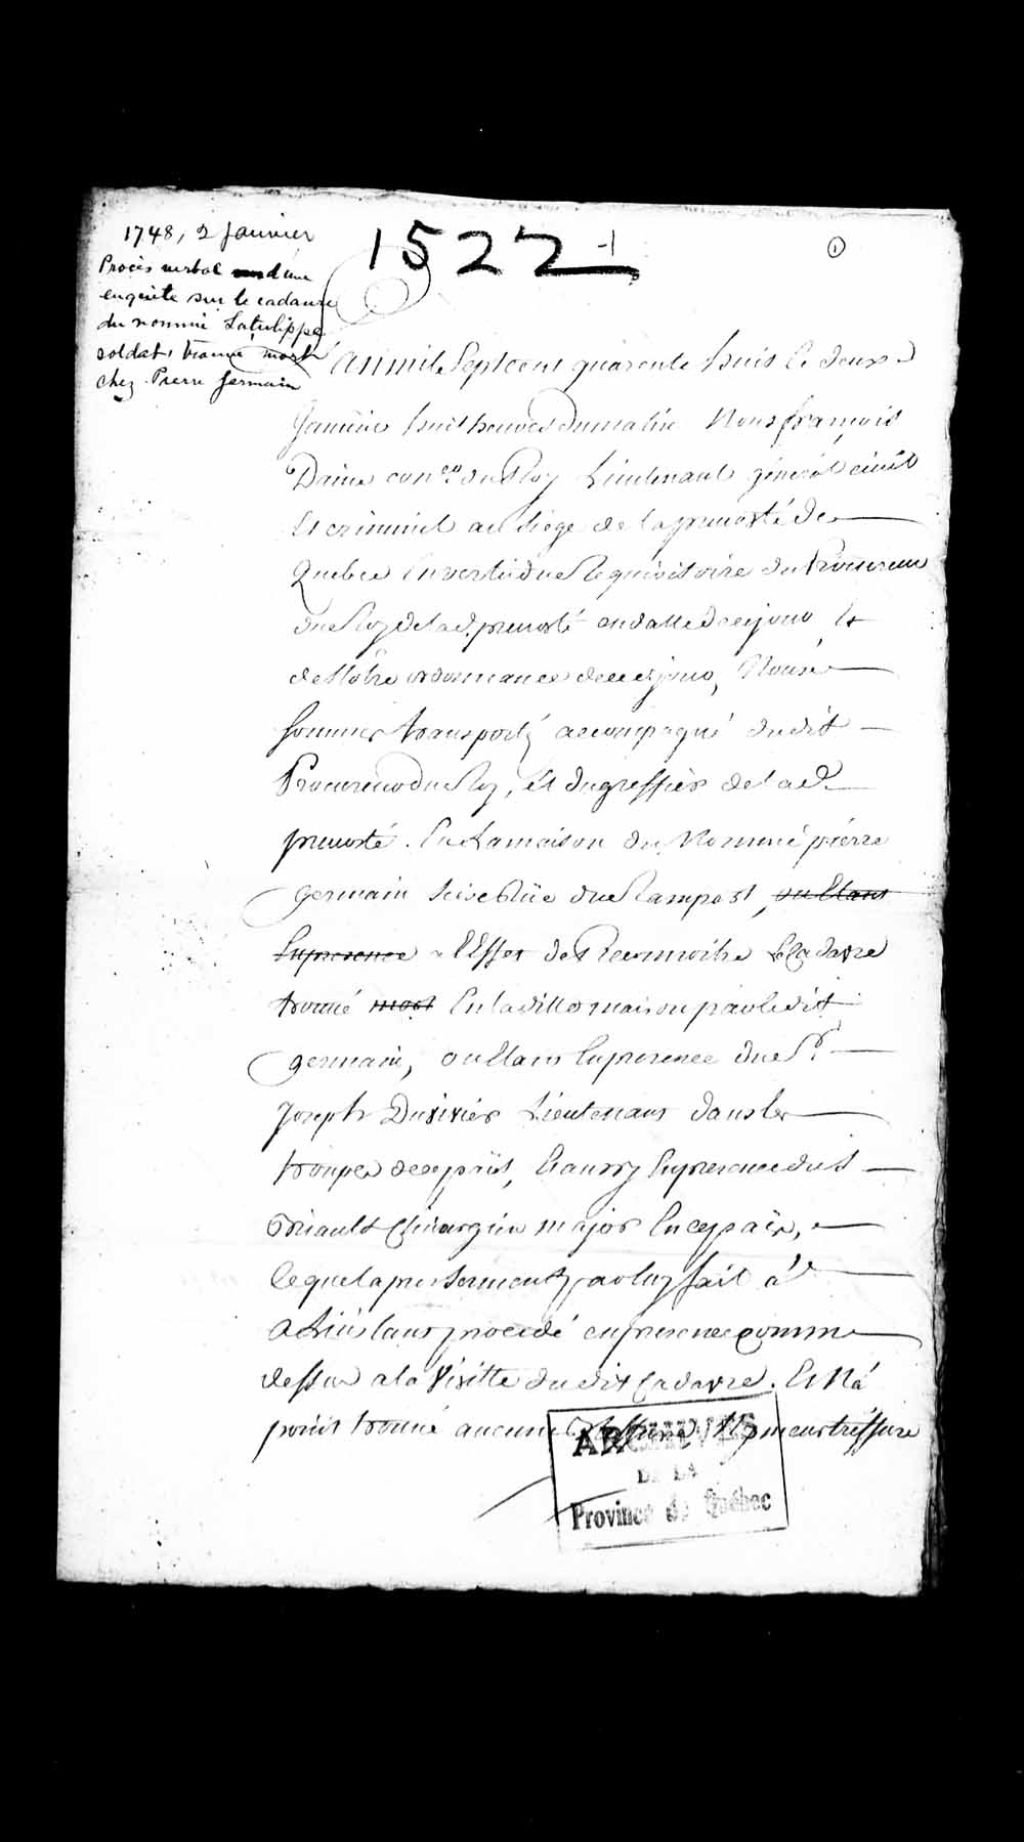 1748, 2 janvier
Procès verbal d'une
enquête sur le cadavre
du nommé Latulippe
soldat, trouvé mort
chez Pierre Germain
1522 -1
1
L'an mil Sept cent quarente huit le deux
Janvier huit heures du matin Nous françois
Daine con.er du Roy Lieutenant général civil
Et criminel au siege de la prevosté de
Quebec En vertu du Requisitoire du Procureur
du Roy de lad. prevosté en datte de cejour Et
de Nôtre ordonnance de cejour, Nous
sommes transporté accompagné dudit
Procureur du Roy, Et du greffier de lad.
prevosté. En La maison du Nommé pierre
germain scise Rüe du Rampart, ou Etant
En presence a l'Effet de Reconnoitre Le Cadavre
trouvé mort En laditte maison par ledit
germain, ou Etant En presence du Sr.
Joseph Duvivier Lieutenant dans les
troupes de ce païs, Et aussy En presence du S
Briault Chirurgien major En ce païs,
Lequel apres serment par luy fait à
A L'instant procedé en presence comme
dessus a la Visitte du dit Cadavre. Et N'a
point trouvé aucune Ny meurtrissure
ARCHIVES
DE LA
Province de Québec